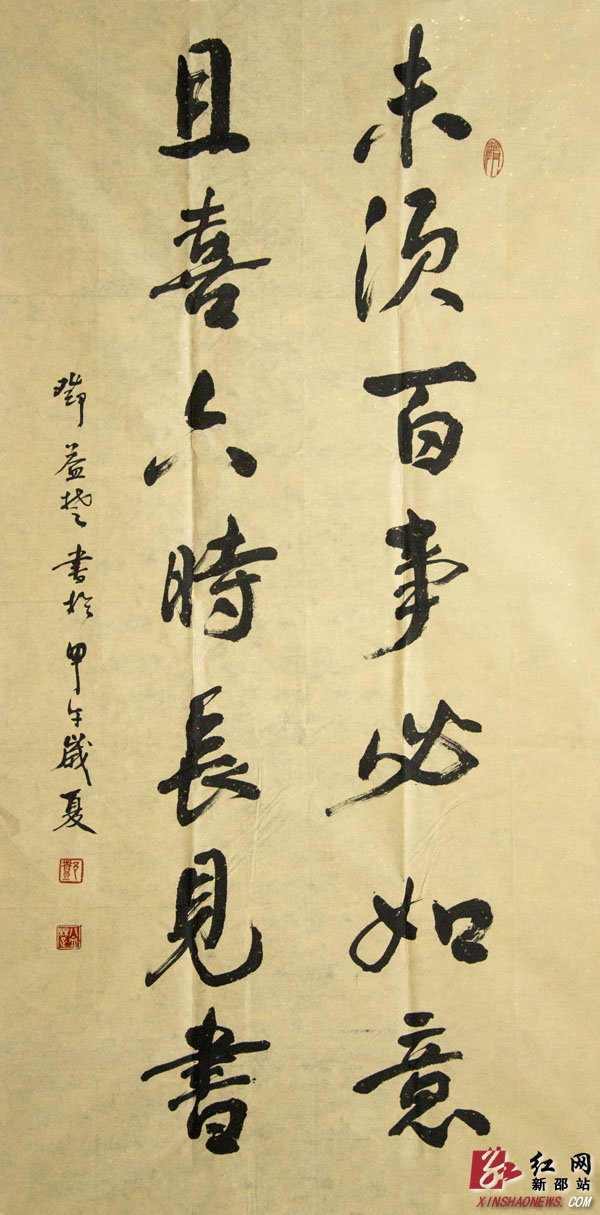 未須百事必如意
且喜六時長見書
鄧益楚書於甲午歲夏
红网
新邵站
XINSHAONEWS.COM